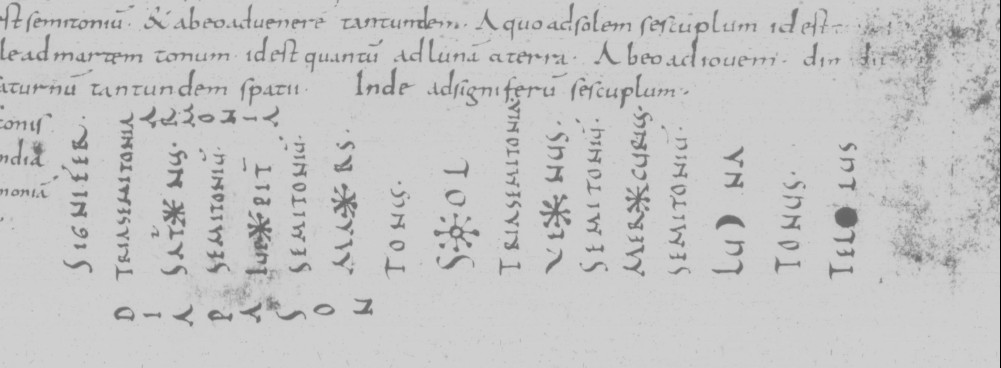 est semitoniũ. & abeo advenere tantundem. A quo ad solem sescuplum id est
le ad martem tonum id est quantũ ad lunã a terra. Abeo ad iovem. dim
aturnũ tantundem spatii. Inde ad signiferũ sescuplum.
tonis
ndiã
moniã
SIGNIFER.
TRIASEMITONIA
SAT NUS.
SEMITONIŨ.
IUP PIT
SEMITONIŨ.
MA RS.
TONUS.
SOL
TRIASEMITONIA
VE NUS.
SEMITONIŨ.
MER CURIUS.
SEMITONIŨ.
LU NA
TONUS.
TEL LUS
DIAPASON